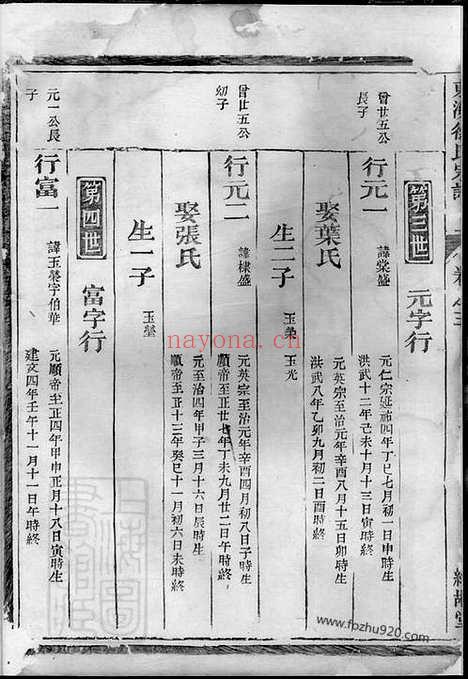 東 氏宗譜
卷之三
第三世
元字行
曾世五公長子
行元一
諱棠盛
元仁宗延祐四年丁巳七月初一日申時生
洪武十二年己未十月十三日寅時終
娶葉氏
元英宗至治元年辛酉八月十五日卯時生
洪武八年乙卯九月初二日酉時終
生二子
玉榮 玉光
曾世五公幼子
行元二
諱棣盛
元英宗至治元年辛酉四月初八日子時生
順帝至正廿七年丁未九月廿二日午時終
娶張氏
元至治四年甲子三月十六日辰時生
順帝至正十三年癸巳十一月初六日未時終
生一子
玉瑩
第四世
富字行
元一公長子
行富一
諱玉榮字伯華
元順帝至正四年甲申正月十八日寅時生
建文四年壬午十一月十一日午時終
nayona.cn
www.fpzhu920.com